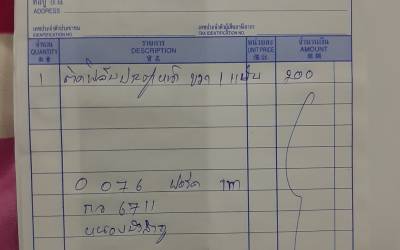 ที่อยู่
ADDRESS
เลขประจำตัวประชาชน
IDENTIFICATION NO.
เลขประจำตัวผู้เสียภาษีอากร
TAX IDENTIFICATION NO.
จำนวน รายการ หน่วยละ จำนวนเงิน
QUANTITY DESCRIPTION UNIT PRICE AMOUNT
1 ติดฟิล์มประตูหน้า ขวา 1 แผ่น 200
0 076 ฟอร์ด
กจ 6711
หนองบัวลำภู